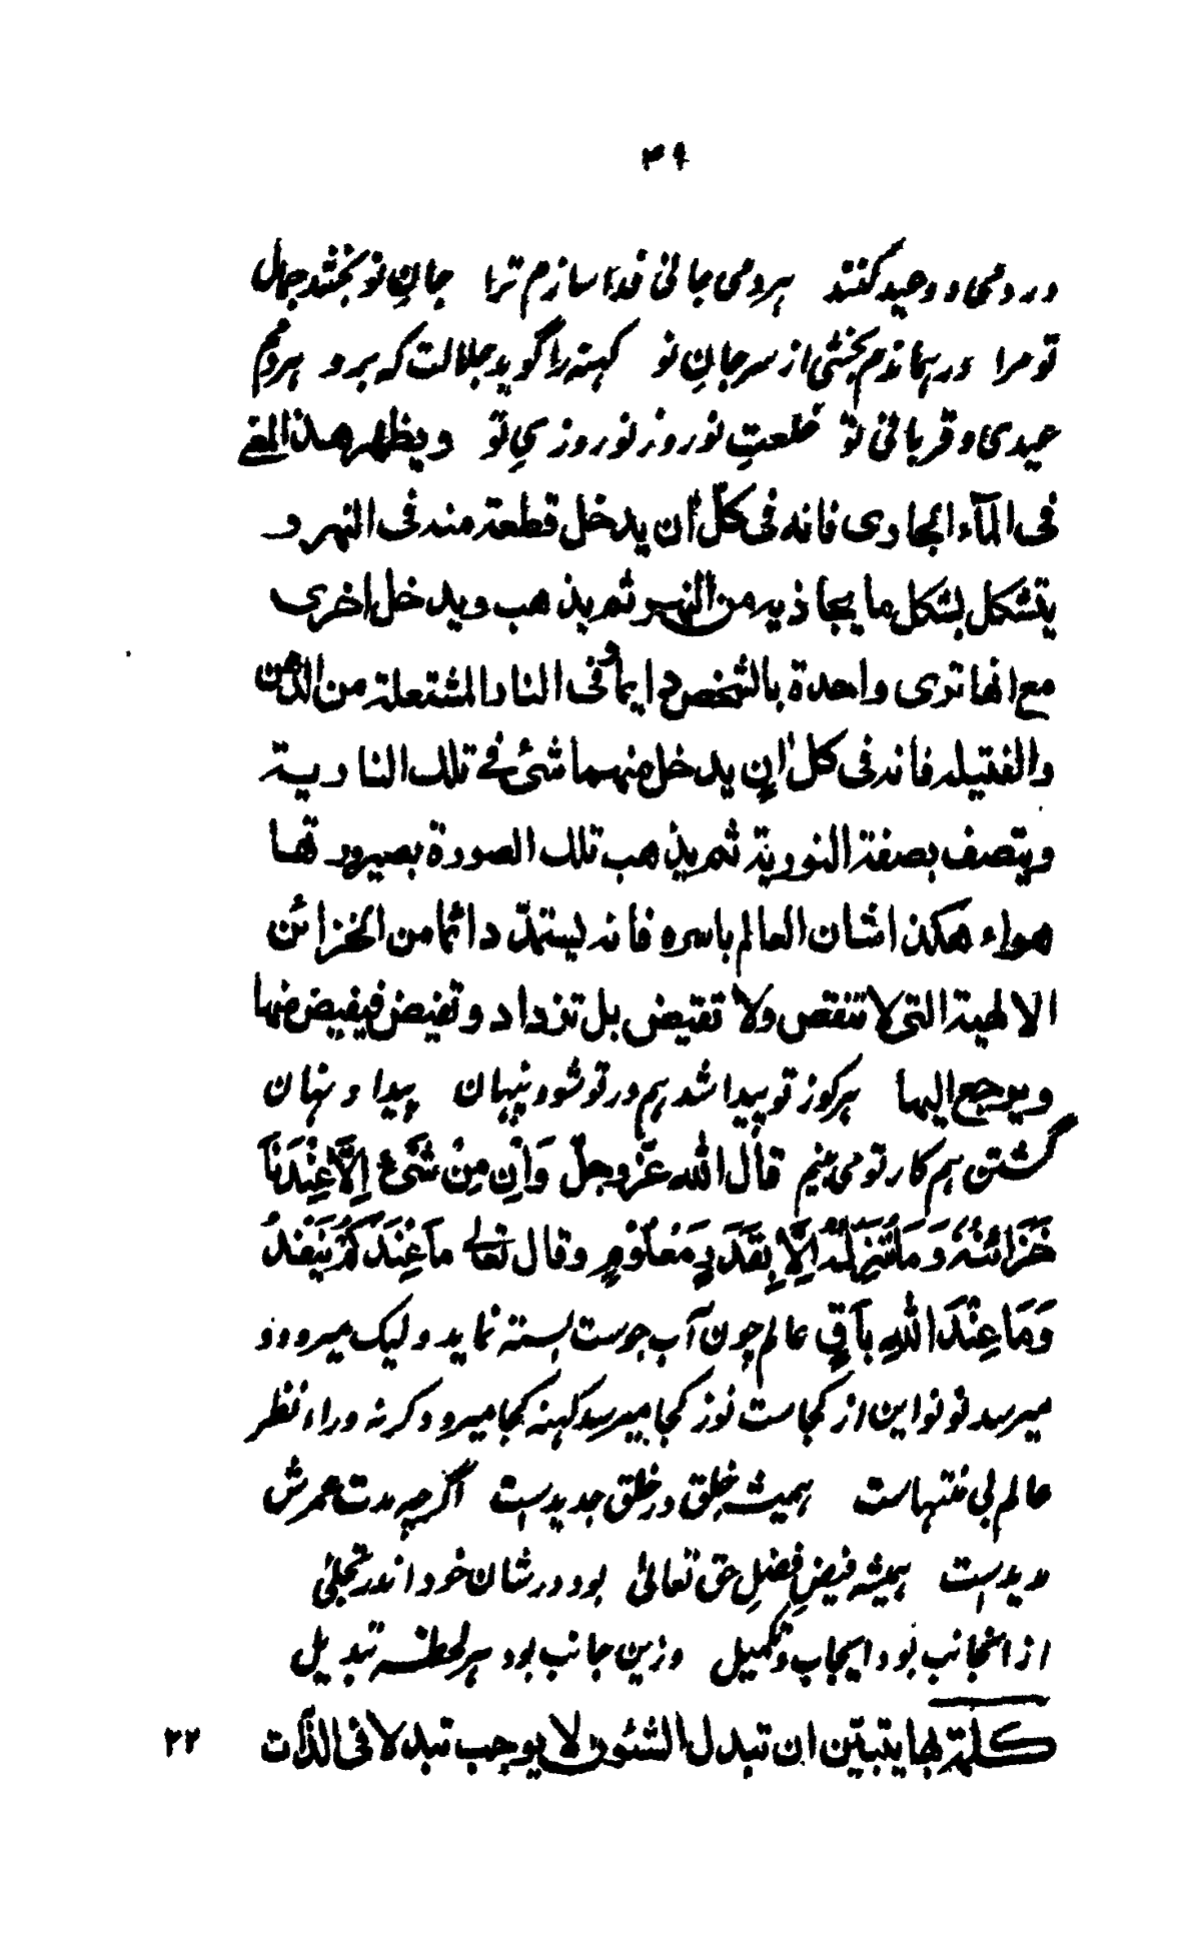 ۳۹
در دمی دو عید کنند هر دمی جانی فدا سازم ترا جانِ نو بخشد جمال
تو مرا در بها ندم بخشی از سر جانِ نو کهنه را گوید جلالت که برو هر دمم
عیدی و قربانی نو خلعتِ نوروز نو روزیِ تو ويظهر هذا المعنى
فى المآء الجارى فانه فى كلّ اٰن يدخل قطعة منه فى النهر و
يتشكل بشكل ما يحاذيه من النهر ثم يذهب ويدخل اخرى
مع انها ترى واحدة بالشخص دايما وفى النار المشتعلة من الدهن
والفتيله فانه فى كل اٰنٍ يدخل منهما شئ فى تلك النارية
ويتصف بصفة النورية ثم يذهب تلك الصورة بصيرورتها
هواء هكذا شان العالم باسره فانه ليستمدّ دائما من الخزائن
الالهية التى لا تنقص ولا تغيض بل تزداد وتفيض فيفيض منها
ويرجع اليها هر کوز تو پیدا شد هم در تو شود پنهان پیدا و نهان
گشتن هم کار تو می بینم قال الله عزّ وجلّ وَاِنْ مِنْ شَىْءٍ اِلَّا عِنْدَنَا
خَزَائِنُهٗ وَمَا نُنَزِّلُهٗ اِلَّا بِقَدَرٍ مَعْلُوْمٍ وقال تعالى مَا عِنْدَكُمْ يَنْفَدُ
وَمَا عِنْدَ اللّٰهِ بَاقٍ عالم چون آب جوست بسته نماید ولیک میرود و
میرسد نو نو این از کجاست نو ز کجا میرسد کهنه کجا میرود گرنه وراء نظر
عالم بی منتهاست همیشه خلق در خلق جدیدست اگرچه مدت عمرش
مدیدست همیشه فیضِ فضلِ حق تعالیٰ بود در شان خود اندر تجلی
از انجانب بود ایجاب و تکمیل وزین جانب بود هر لحظه تبدیل
كلمة بها يتبيّن ان تبدل الشئون لا يوجب تبدلا فى الذّات ۲۲